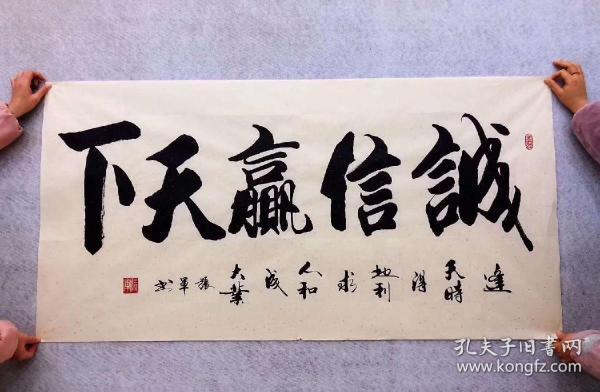 誠信贏天下
逢天時得地利求人和成大業
孔夫子旧书网
www.kongfz.com